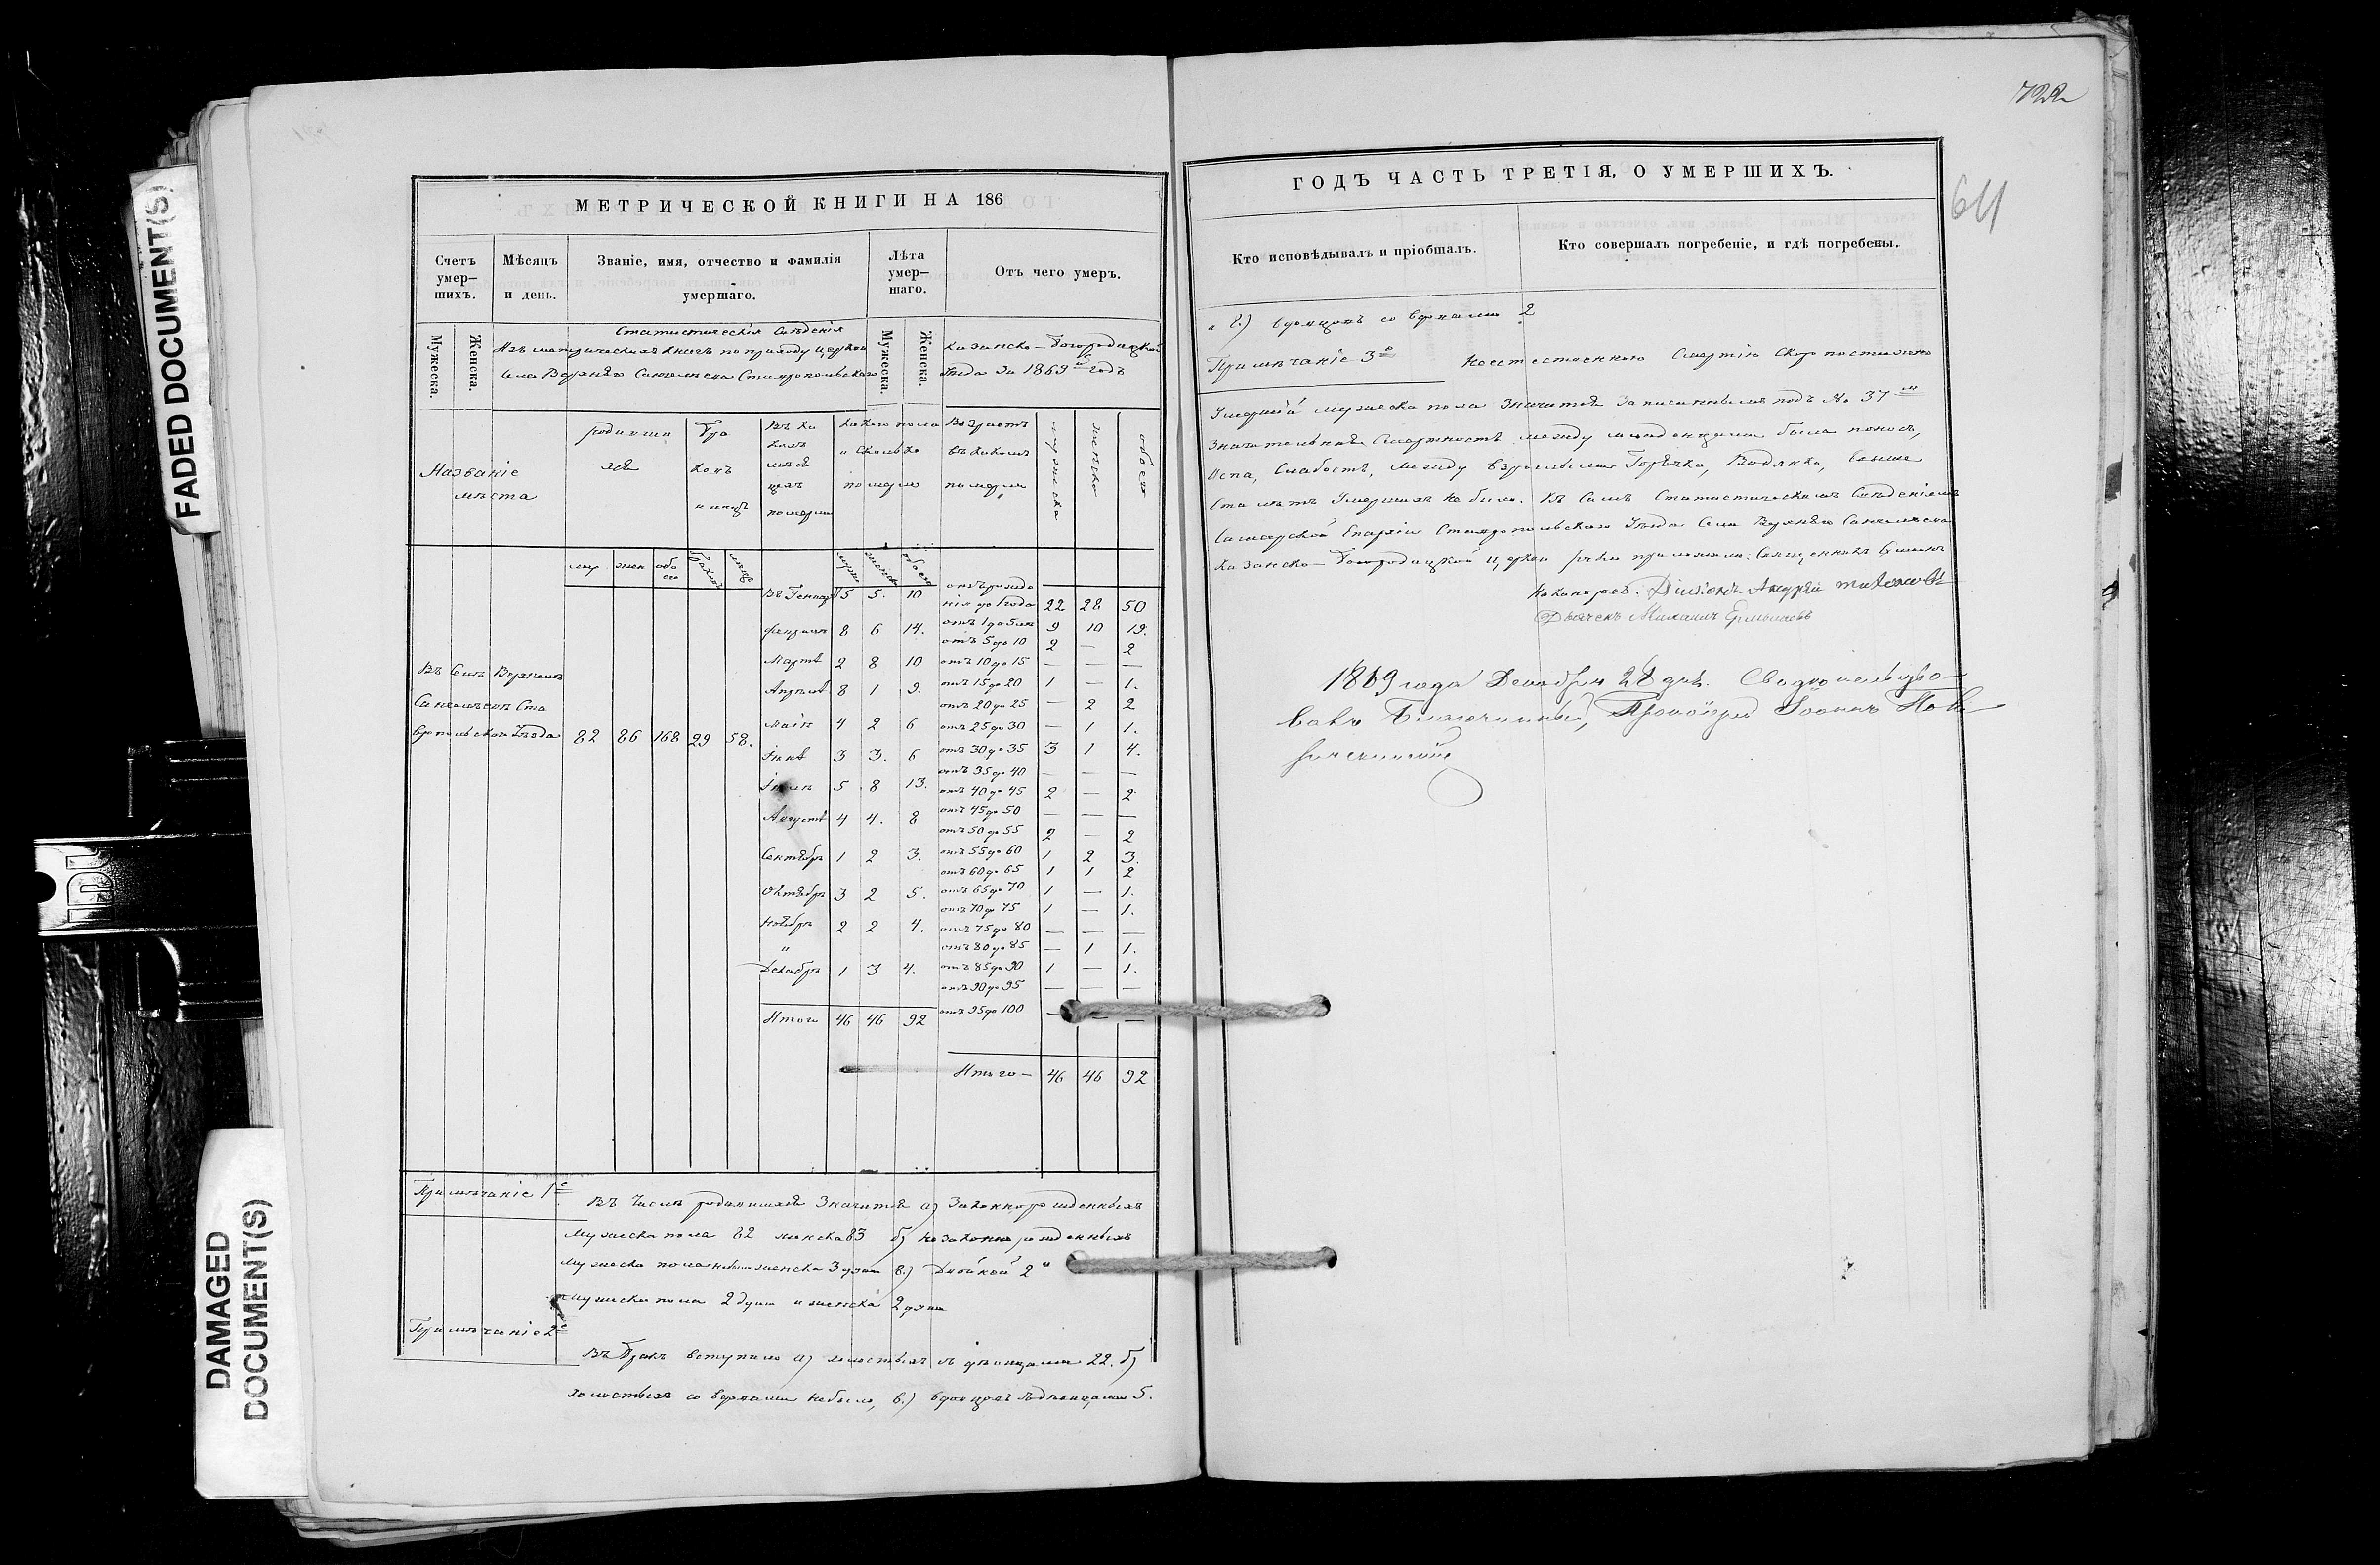 722
МЕТРИЧЕСКОЙ КНИГИ НА 186
Счетъ умер-шихъ.
Мѣсяцъ и день.
Званіе, имя, отчество и фамилія умершаго.
Лѣта умер-шаго.
Отъ чего умеръ.
Мужеска.
Женска.
Мужеска.
Женска.
Статистическія Свѣденія
Изъ метрическихъ книгъ по приходу церкви Казанско-Богородицкой
села Верхняго Санчелеева Ставропольскаго уѣзда за 1869й годъ
Названіе мѣста
родившихся
Бра ковъ и лицъ
Въ ка кихъ мѣся цахъ померли
Какого пола и сколько померло
Возрастъ въ какомъ померли
мужеска
женска
обоего
муж. жен. обо его браковъ лицъ
мужес женска обоего
Въ Селѣ Верхнемъ
Санчелеевѣ Ста
вропольскаго Уѣзда 82 86 168 29 58.
Въ Генварѣ 5 5. 10
Февралѣ 8 6 14.
Мартѣ 2 8 10
Апрѣлѣ 8 1 9.
Маѣ 4 2 6
Іюнѣ 3 3. 6
Іюлѣ 5 8 13.
Августѣ 4 4. 8
Сентябрѣ 1 2 3.
Октябрѣ 3 2 5.
Ноябрѣ 2 2 4.
"
Декабрѣ 1 3 4.
Итого 46 46 92
отъ рожде
нія до 1 года 22 28 50
отъ 1 до 5 лѣтъ 9 10 19.
отъ 5 до 10 2 — 2
отъ 10 до 15 — — —
отъ 15 до 20 1 — 1.
отъ 20 до 25 — 2 2
отъ 25 до 30 — 1 1.
отъ 30 до 35 3 1 4.
отъ 35 до 40 — — —
отъ 40 до 45 2 — 2
отъ 45 до 50 — — —
отъ 50 до 55 2 — 2
отъ 55 до 60 1 2 3.
отъ 60 до 65 1 1 2
отъ 65 до 70 1 — 1.
отъ 70 до 75 1 — 1.
отъ 75 до 80 — — —
отъ 80 до 85 — 1 1.
отъ 85 до 90 1 — 1.
отъ 90 до 95 — — —
отъ 95 до 100 — — —
Итого — 46 46 92
Примѣчаніе 1е
Въ числѣ родившихся значится а) Законнорожденныхъ
мужеска пола 82 женска 83 б) незаконнорожденныхъ
мужеска пола небыло женска 3 души в.) Двойной 2
мужеска пола 2 души и женска 2 души
Примѣчаніе 2е
Въ Бракъ вступило а) холостыхъ съ дѣвицами 22. б)
холостыхъ со вдовами небыло, в.) вдовцовъ съ дѣвицами 5.
ГОДЪ ЧАСТЬ ТРЕТІЯ, О УМЕРШИХЪ.
64
Кто исповѣдывалъ и пріобщалъ.
Кто совершалъ погребеніе, и гдѣ погребены.
и г.) вдовцовъ со вдовами 2
Примѣчаніе 3е Неестественною Смертію Скоропостижно
Умершій мужеска пола значится записаннымъ подъ № 37м
Значительная Смертность между младенцами была поносъ,
Оспа, Слабость, между взрослыми Горячка, Водянка, выше
Ста лѣтъ умершихъ не было. Къ Симъ Статистическимъ Свѣденіямъ
Самарской Епархіи Ставропольскаго Уѣзда Села Верхняго Санчелеева
Казанско-Богородицкой церкви руки приложили: Священникъ Симеонъ
Діаконъ Андрей
Дьячекъ Михаилъ Ермолаевъ
1869 года Декабря 28 дня. Свидѣтельство-
валъ Благочинный, Протоіерей Іоаннъ